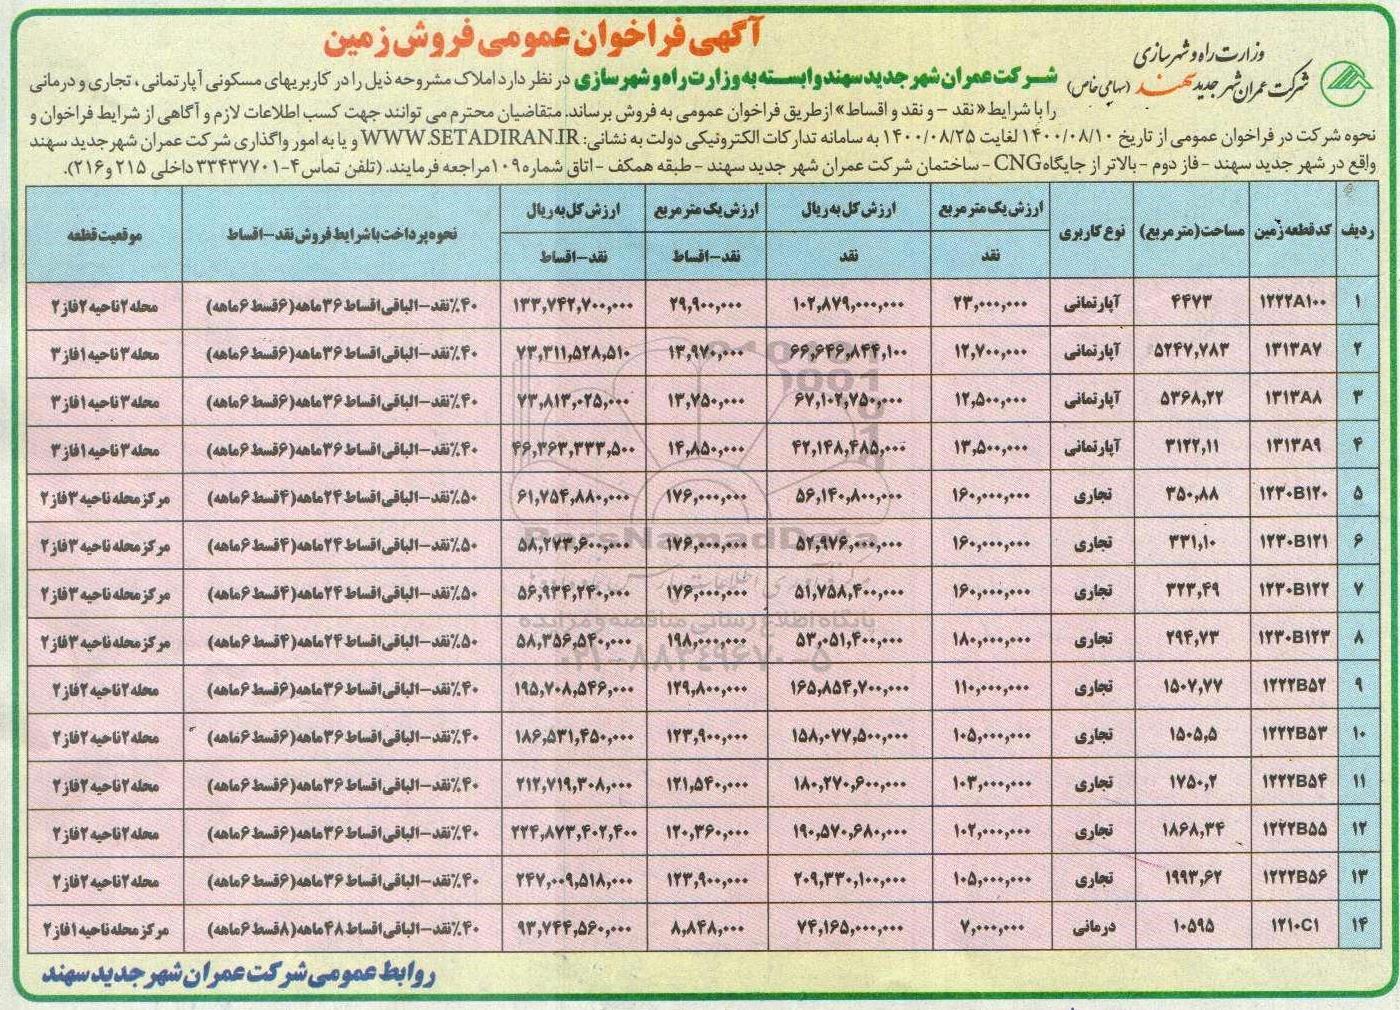 آگهی فراخوان عمومی فروش زمین
وزارت راه و شهرسازی
شرکت عمران شهر جدید سهند (سهامی خاص)
شرکت عمران شهر جدید سهند وابسته به وزارت راه و شهرسازی در نظر دارد املاک مشروحه ذیل را در کاربریهای مسکونی آپارتمانی، تجاری و درمانی
را با شرایط «نقد - و نقد و اقساط» از طریق فراخوان عمومی به فروش برساند. متقاضیان محترم می توانند جهت کسب اطلاعات لازم و آگاهی از شرایط فراخوان و
نحوه شرکت در فراخوان عمومی از تاریخ ۱۴۰۰/۰۸/۱۰ لغایت ۱۴۰۰/۰۸/۲۵ به سامانه تدارکات الکترونیکی دولت به نشانی: WWW.SETADIRAN.IR و یا به امور واگذاری شرکت عمران شهر جدید سهند
واقع در شهر جدید سهند - فاز دوم - بالاتر از جایگاه CNG - ساختمان شرکت عمران شهر جدید سهند - طبقه همکف - اتاق شماره ۱۰۹ مراجعه فرمایند. (تلفن تماس ۴-۳۳۴۳۷۷۰۱ داخلی ۲۱۵ و ۲۱۶).
ردیف کد قطعه زمین مساحت (متر مربع) نوع کاربری ارزش یک متر مربع نقد ارزش کل به ریال نقد ارزش یک متر مربع نقد-اقساط ارزش کل به ریال نقد-اقساط نحوه پرداخت با شرایط فروش نقد-اقساط موقعیت قطعه
۱ ۱۲۲۲A۱۰۰ ۴۴۷۳ آپارتمانی ۲۳,۰۰۰,۰۰۰ ۱۰۲,۸۷۹,۰۰۰,۰۰۰ ۲۹,۹۰۰,۰۰۰ ۱۳۳,۷۴۲,۷۰۰,۰۰۰ ۴۰٪ نقد-الباقی اقساط ۳۶ ماهه (۶ قسط ۶ ماهه) محله ۲ ناحیه ۲ فاز ۲
۲ ۱۳۱۳A۷ ۵۲۴۷,۷۸۳ آپارتمانی ۱۲,۷۰۰,۰۰۰ ۶۶,۶۴۶,۸۴۴,۱۰۰ ۱۳,۹۷۰,۰۰۰ ۷۳,۳۱۱,۵۲۸,۵۱۰ ۴۰٪ نقد-الباقی اقساط ۳۶ ماهه (۶ قسط ۶ ماهه) محله ۳ ناحیه ۱ فاز ۳
۳ ۱۳۱۳A۸ ۵۳۶۸,۲۲ آپارتمانی ۱۲,۵۰۰,۰۰۰ ۶۷,۱۰۲,۷۵۰,۰۰۰ ۱۳,۷۵۰,۰۰۰ ۷۳,۸۱۳,۰۲۵,۰۰۰ ۴۰٪ نقد-الباقی اقساط ۳۶ ماهه (۶ قسط ۶ ماهه) محله ۳ ناحیه ۱ فاز ۳
۴ ۱۳۱۳A۹ ۳۱۲۲,۱۱ آپارتمانی ۱۳,۵۰۰,۰۰۰ ۴۲,۱۴۸,۴۸۵,۰۰۰ ۱۴,۸۵۰,۰۰۰ ۴۶,۳۶۳,۳۳۳,۵۰۰ ۴۰٪ نقد-الباقی اقساط ۳۶ ماهه (۶ قسط ۶ ماهه) محله ۳ ناحیه ۱ فاز ۳
۵ ۱۲۳۰B۱۲۰ ۳۵۰,۸۸ تجاری ۱۶۰,۰۰۰,۰۰۰ ۵۶,۱۴۰,۸۰۰,۰۰۰ ۱۷۶,۰۰۰,۰۰۰ ۶۱,۷۵۴,۸۸۰,۰۰۰ ۵۰٪ نقد-الباقی اقساط ۲۴ ماهه (۴ قسط ۶ ماهه) مرکز محله ناحیه ۳ فاز ۲
۶ ۱۲۳۰B۱۲۱ ۳۳۱,۱۰ تجاری ۱۶۰,۰۰۰,۰۰۰ ۵۲,۹۷۶,۰۰۰,۰۰۰ ۱۷۶,۰۰۰,۰۰۰ ۵۸,۲۷۳,۶۰۰,۰۰۰ ۵۰٪ نقد-الباقی اقساط ۲۴ ماهه (۴ قسط ۶ ماهه) مرکز محله ناحیه ۳ فاز ۲
۷ ۱۲۳۰B۱۲۲ ۳۲۳,۴۹ تجاری ۱۶۰,۰۰۰,۰۰۰ ۵۱,۷۵۸,۴۰۰,۰۰۰ ۱۷۶,۰۰۰,۰۰۰ ۵۶,۹۳۴,۲۴۰,۰۰۰ ۵۰٪ نقد-الباقی اقساط ۲۴ ماهه (۴ قسط ۶ ماهه) مرکز محله ناحیه ۳ فاز ۲
۸ ۱۲۳۰B۱۲۳ ۲۹۴,۷۳ تجاری ۱۸۰,۰۰۰,۰۰۰ ۵۳,۰۵۱,۴۰۰,۰۰۰ ۱۹۸,۰۰۰,۰۰۰ ۵۸,۳۵۶,۵۴۰,۰۰۰ ۵۰٪ نقد-الباقی اقساط ۲۴ ماهه (۴ قسط ۶ ماهه) مرکز محله ناحیه ۳ فاز ۲
۹ ۱۲۲۲B۵۲ ۱۵۰۷,۷۷ تجاری ۱۱۰,۰۰۰,۰۰۰ ۱۶۵,۸۵۴,۷۰۰,۰۰۰ ۱۲۹,۸۰۰,۰۰۰ ۱۹۵,۷۰۸,۵۴۶,۰۰۰ ۴۰٪ نقد-الباقی اقساط ۳۶ ماهه (۶ قسط ۶ ماهه) محله ۲ ناحیه ۲ فاز ۲
۱۰ ۱۲۲۲B۵۳ ۱۵۰۵,۵ تجاری ۱۰۵,۰۰۰,۰۰۰ ۱۵۸,۰۷۷,۵۰۰,۰۰۰ ۱۲۳,۹۰۰,۰۰۰ ۱۸۶,۵۳۱,۴۵۰,۰۰۰ ۴۰٪ نقد-الباقی اقساط ۳۶ ماهه (۶ قسط ۶ ماهه) محله ۲ ناحیه ۲ فاز ۲
۱۱ ۱۲۲۲B۵۴ ۱۷۵۰,۲ تجاری ۱۰۳,۰۰۰,۰۰۰ ۱۸۰,۲۷۰,۶۰۰,۰۰۰ ۱۲۱,۵۴۰,۰۰۰ ۲۱۲,۷۱۹,۳۰۸,۰۰۰ ۴۰٪ نقد-الباقی اقساط ۳۶ ماهه (۶ قسط ۶ ماهه) محله ۲ ناحیه ۲ فاز ۲
۱۲ ۱۲۲۲B۵۵ ۱۸۶۸,۳۴ تجاری ۱۰۲,۰۰۰,۰۰۰ ۱۹۰,۵۷۰,۶۸۰,۰۰۰ ۱۲۰,۳۶۰,۰۰۰ ۲۲۴,۸۷۳,۴۰۲,۴۰۰ ۴۰٪ نقد-الباقی اقساط ۳۶ ماهه (۶ قسط ۶ ماهه) محله ۲ ناحیه ۲ فاز ۲
۱۳ ۱۲۲۲B۵۶ ۱۹۹۳,۶۲ تجاری ۱۰۵,۰۰۰,۰۰۰ ۲۰۹,۳۳۰,۱۰۰,۰۰۰ ۱۲۳,۹۰۰,۰۰۰ ۲۴۷,۰۰۹,۵۱۸,۰۰۰ ۴۰٪ نقد-الباقی اقساط ۳۶ ماهه (۶ قسط ۶ ماهه) محله ۲ ناحیه ۲ فاز ۲
۱۴ ۱۲۱۰C۱ ۱۰۵۹۵ درمانی ۷,۰۰۰,۰۰۰ ۷۴,۱۶۵,۰۰۰,۰۰۰ ۸,۸۴۸,۰۰۰ ۹۳,۷۴۴,۵۶۰,۰۰۰ ۴۰٪ نقد-الباقی اقساط ۴۸ ماهه (۸ قسط ۶ ماهه) مرکز محله ناحیه ۱ فاز ۲
ParsNamadData
پایگاه اطلاع رسانی مناقصه و مزایده
۰۲۱-۸۸۳۴۹۶۷۰-۵
روابط عمومی شرکت عمران شهر جدید سهند